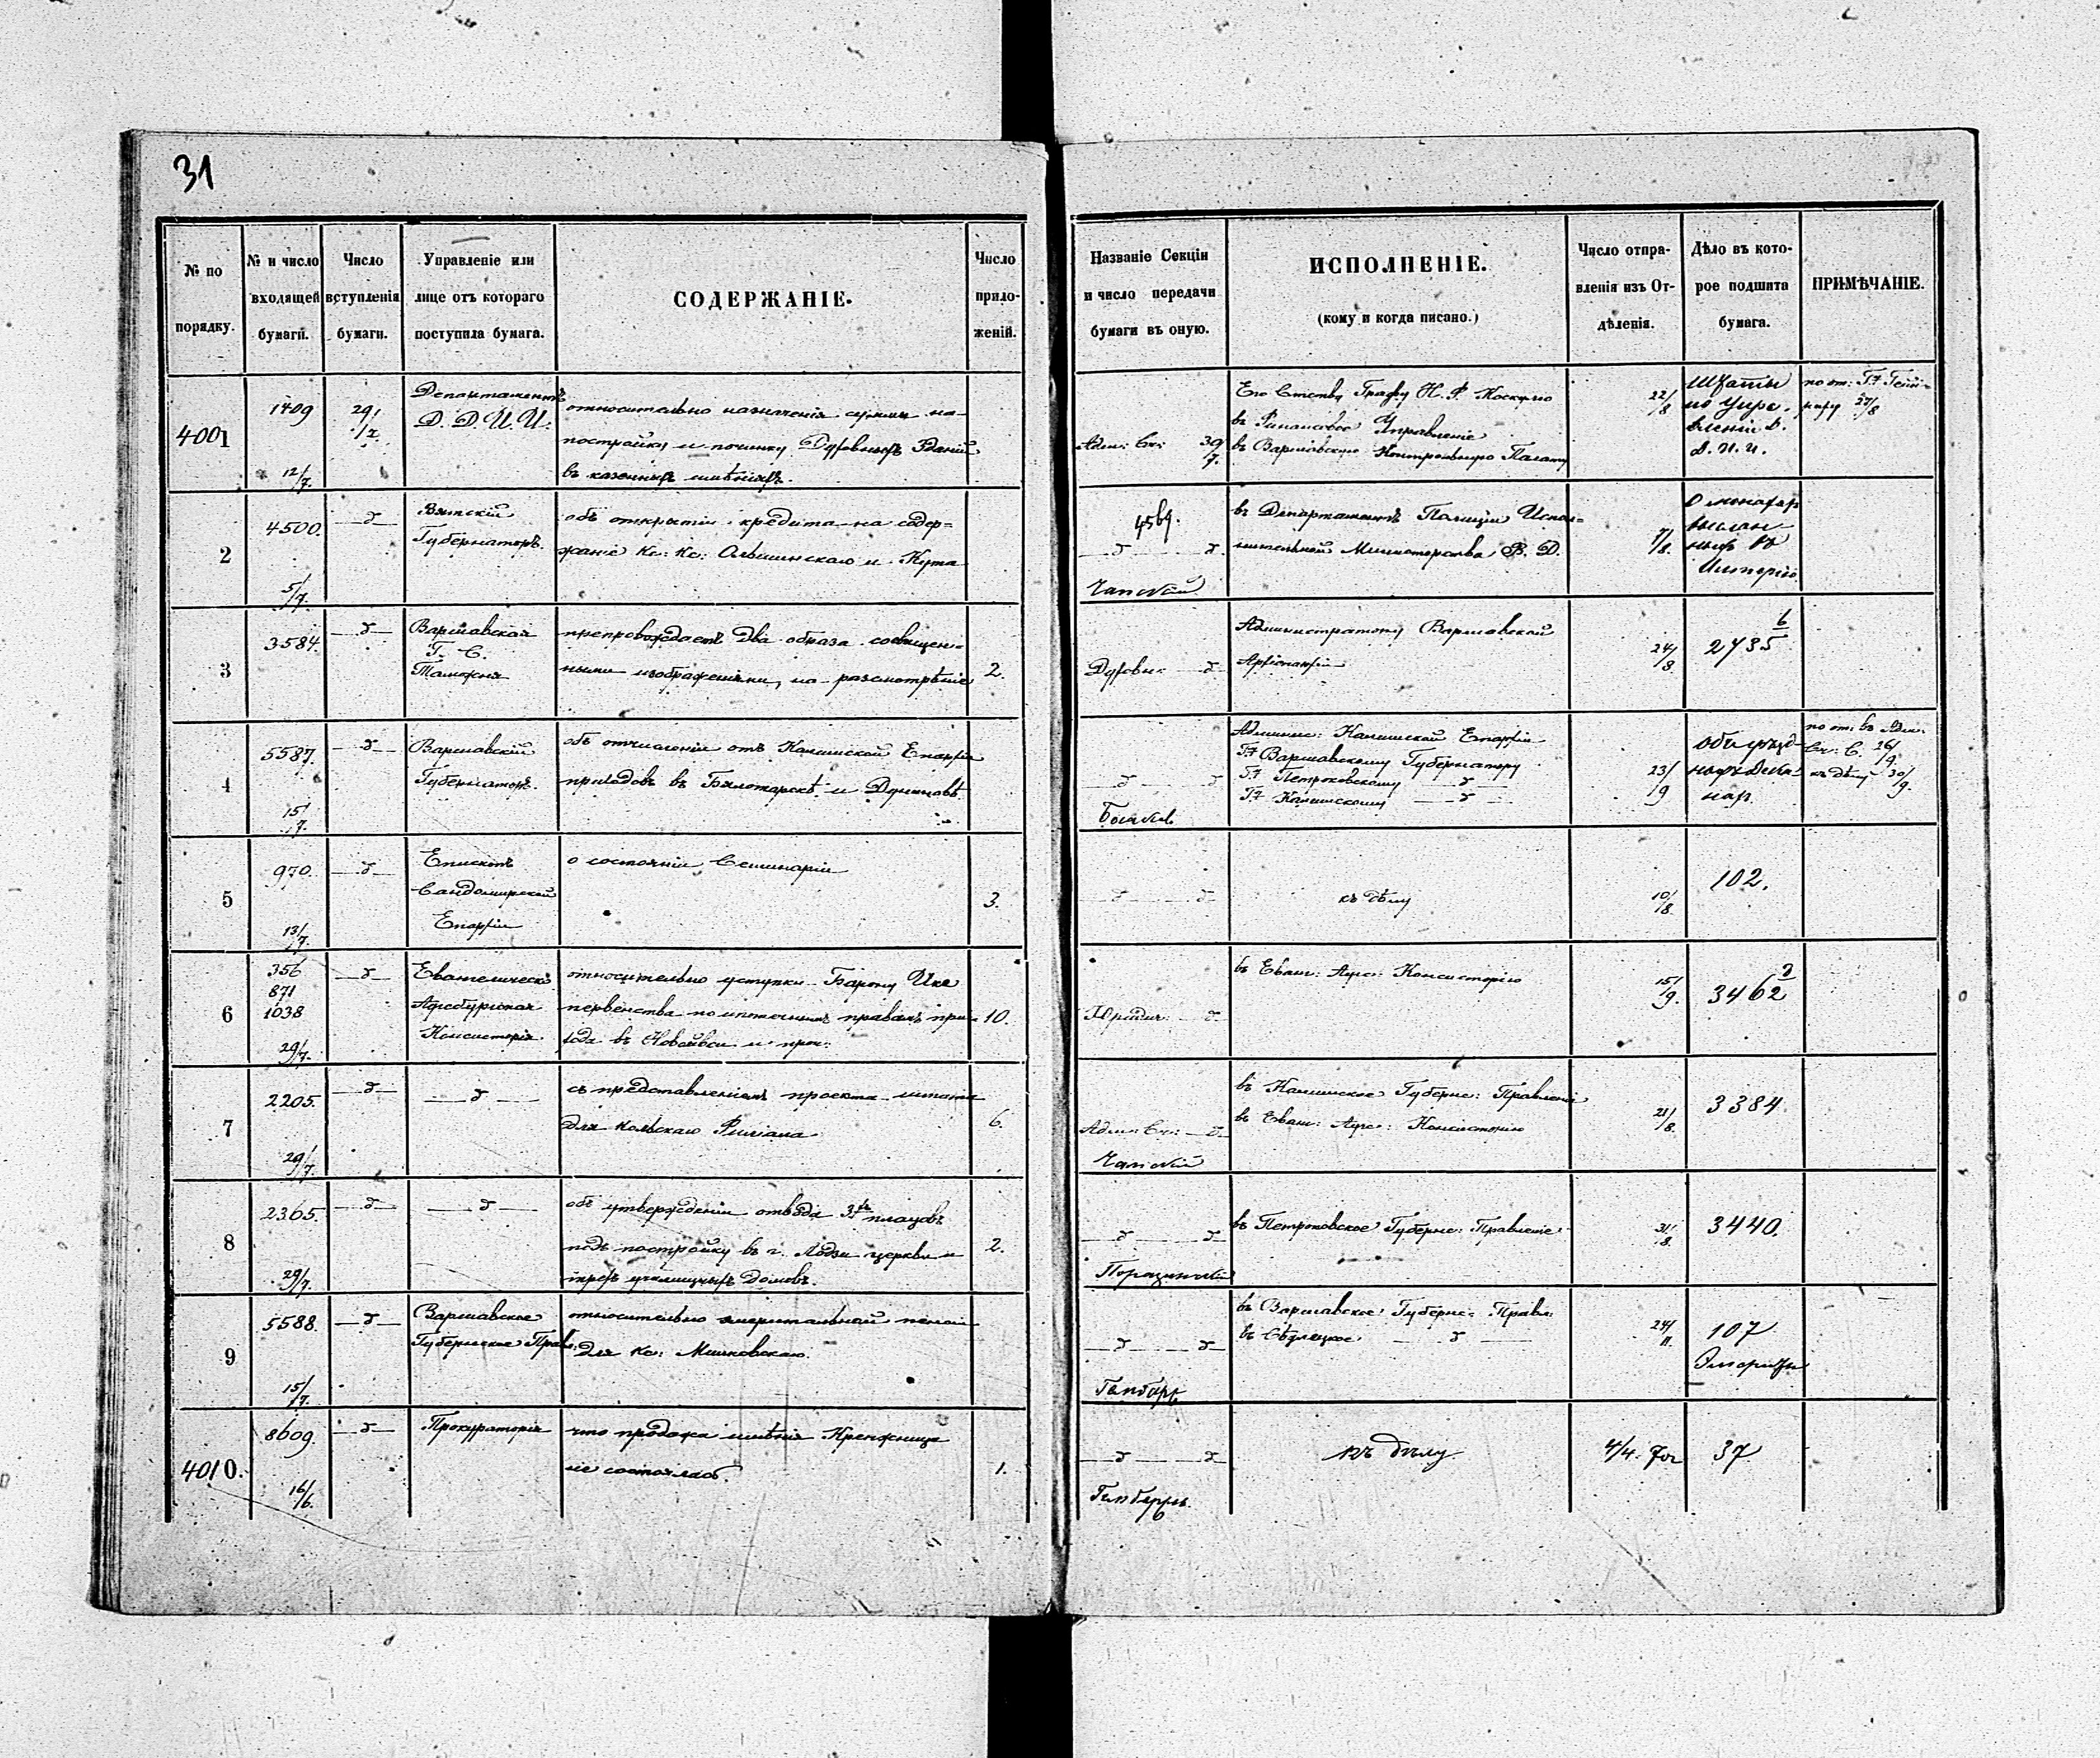 31
№ по
порядку.
№ и число
входящей
бумаги.
Число
вступленія
бумаги.
Управленіе или
лице отъ котораго
поступила бумага.
СОДЕРЖАНІЕ.
Число
прило-
женій.
Названіе Секціи
и число передачи
бумаги въ оную.
ИСПОЛНЕНІЕ.
(кому и когда писано.)
Число отпра-
вленія изъ От-
дѣленія.
Дѣло въ кото-
рое подшита
бумага.
ПРИМѢЧАНІЕ.
4001
1409
12/7.
29/7
Департаментъ
Д. Д. И. И.
относительно назначенія суммъ на
постройку и починку Духовныхъ Зданій
въ казенныхъ имѣніяхъ.
Адм: Св: 30/7.
Его Графу
въ Финансовое Управленіе
въ Варшавскую Контрольную Палату
22/8
Штаты
Д. И. И.
по от:
27/8
2
4500.
5/7.
Вятскій
Губернаторъ.
объ открытіи кредита на содер=
жаніе Кс: Кс: Ольшинскаго и Кута
4569.
Чапскій
въ Департаментъ Полиціи Испол=
нительной Министерства В. Д.
7/8.
О монахахъ
выслан-
ныхъ въ
Имперію
3
3584.
Варшавская
Г. С.
Таможня
препровождаетъ два образа со священ-
ными изображеніями, на разсмотрѣніе
2.
Духовн:
Администратору Варшавской
Архіепархіи
24/8
6
2735
4
5587.
15/7.
Варшавскій
Губернаторъ.
объ отчисленіи отъ Калишской Епархіи
приходовъ въ Бялотарскѣ и Дуниновѣ.
Админис: Калишской Епархіи
Г.? Варшавскому Губернатору
Г.? Петроковскому
Г.? Калишскому
23/9
по от: въ Адм:
Св: С. 26/9.
къ дѣлу 30/9.
5
970.
13/7.
Епископъ
Сандомирской
Епархіи
о состояніи Семинаріи
3.
къ дѣлу
10/8.
102.
6
356
871
1038
29/7.
Евангелическ:
Аугсбургская
Консисторія.
относительно уступки Барону Ике
первенства по ипотечнымъ правамъ при-
хода въ и проч:
10.
Юридич:
въ Еванг: Аугс: Консисторію
15/9.
3462
7
2205.
29/7.
съ представленіемъ проекта штата
для Кольскаго Филіала
6.
Адм: Св:
Чапскій
въ Калишское Губернс: Правленіе
въ Еванг: Аугс: Консисторію
21/8.
3384.
8
2365.
29/7.
объ утвержденіи отвода 3хъ плацовъ
подъ постройку въ г. Лодзи церкви и
трехъ училищныхъ домовъ.
2.
въ Петроковское Губернс: Правленіе
31/8.
3440.
9
5588.
15/7.
Варшавское
Губернское Правл:
относительно эмеритальной пенсіи
для Кс: Мышковскаго.
въ Варшавское Губернс: Правл:
въ Сѣдлецкое
24/11.
107
4010.
8609.
16/6.
Прокураторія
что продажа имѣнія Крежница
не состоялась.
1.
къ дѣлу
4/4.
37